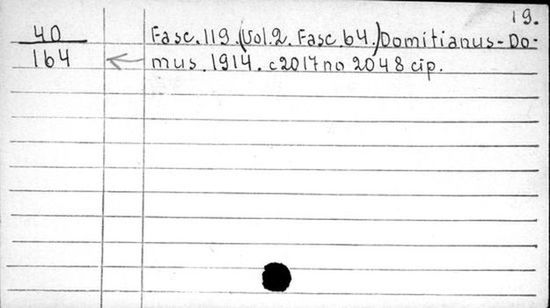 19.
40 Fasc. 119. (Vol. 2. Fasc. 64.) Domitianus-Do-
164 mus. 1914. c2017 no 2048 cip.